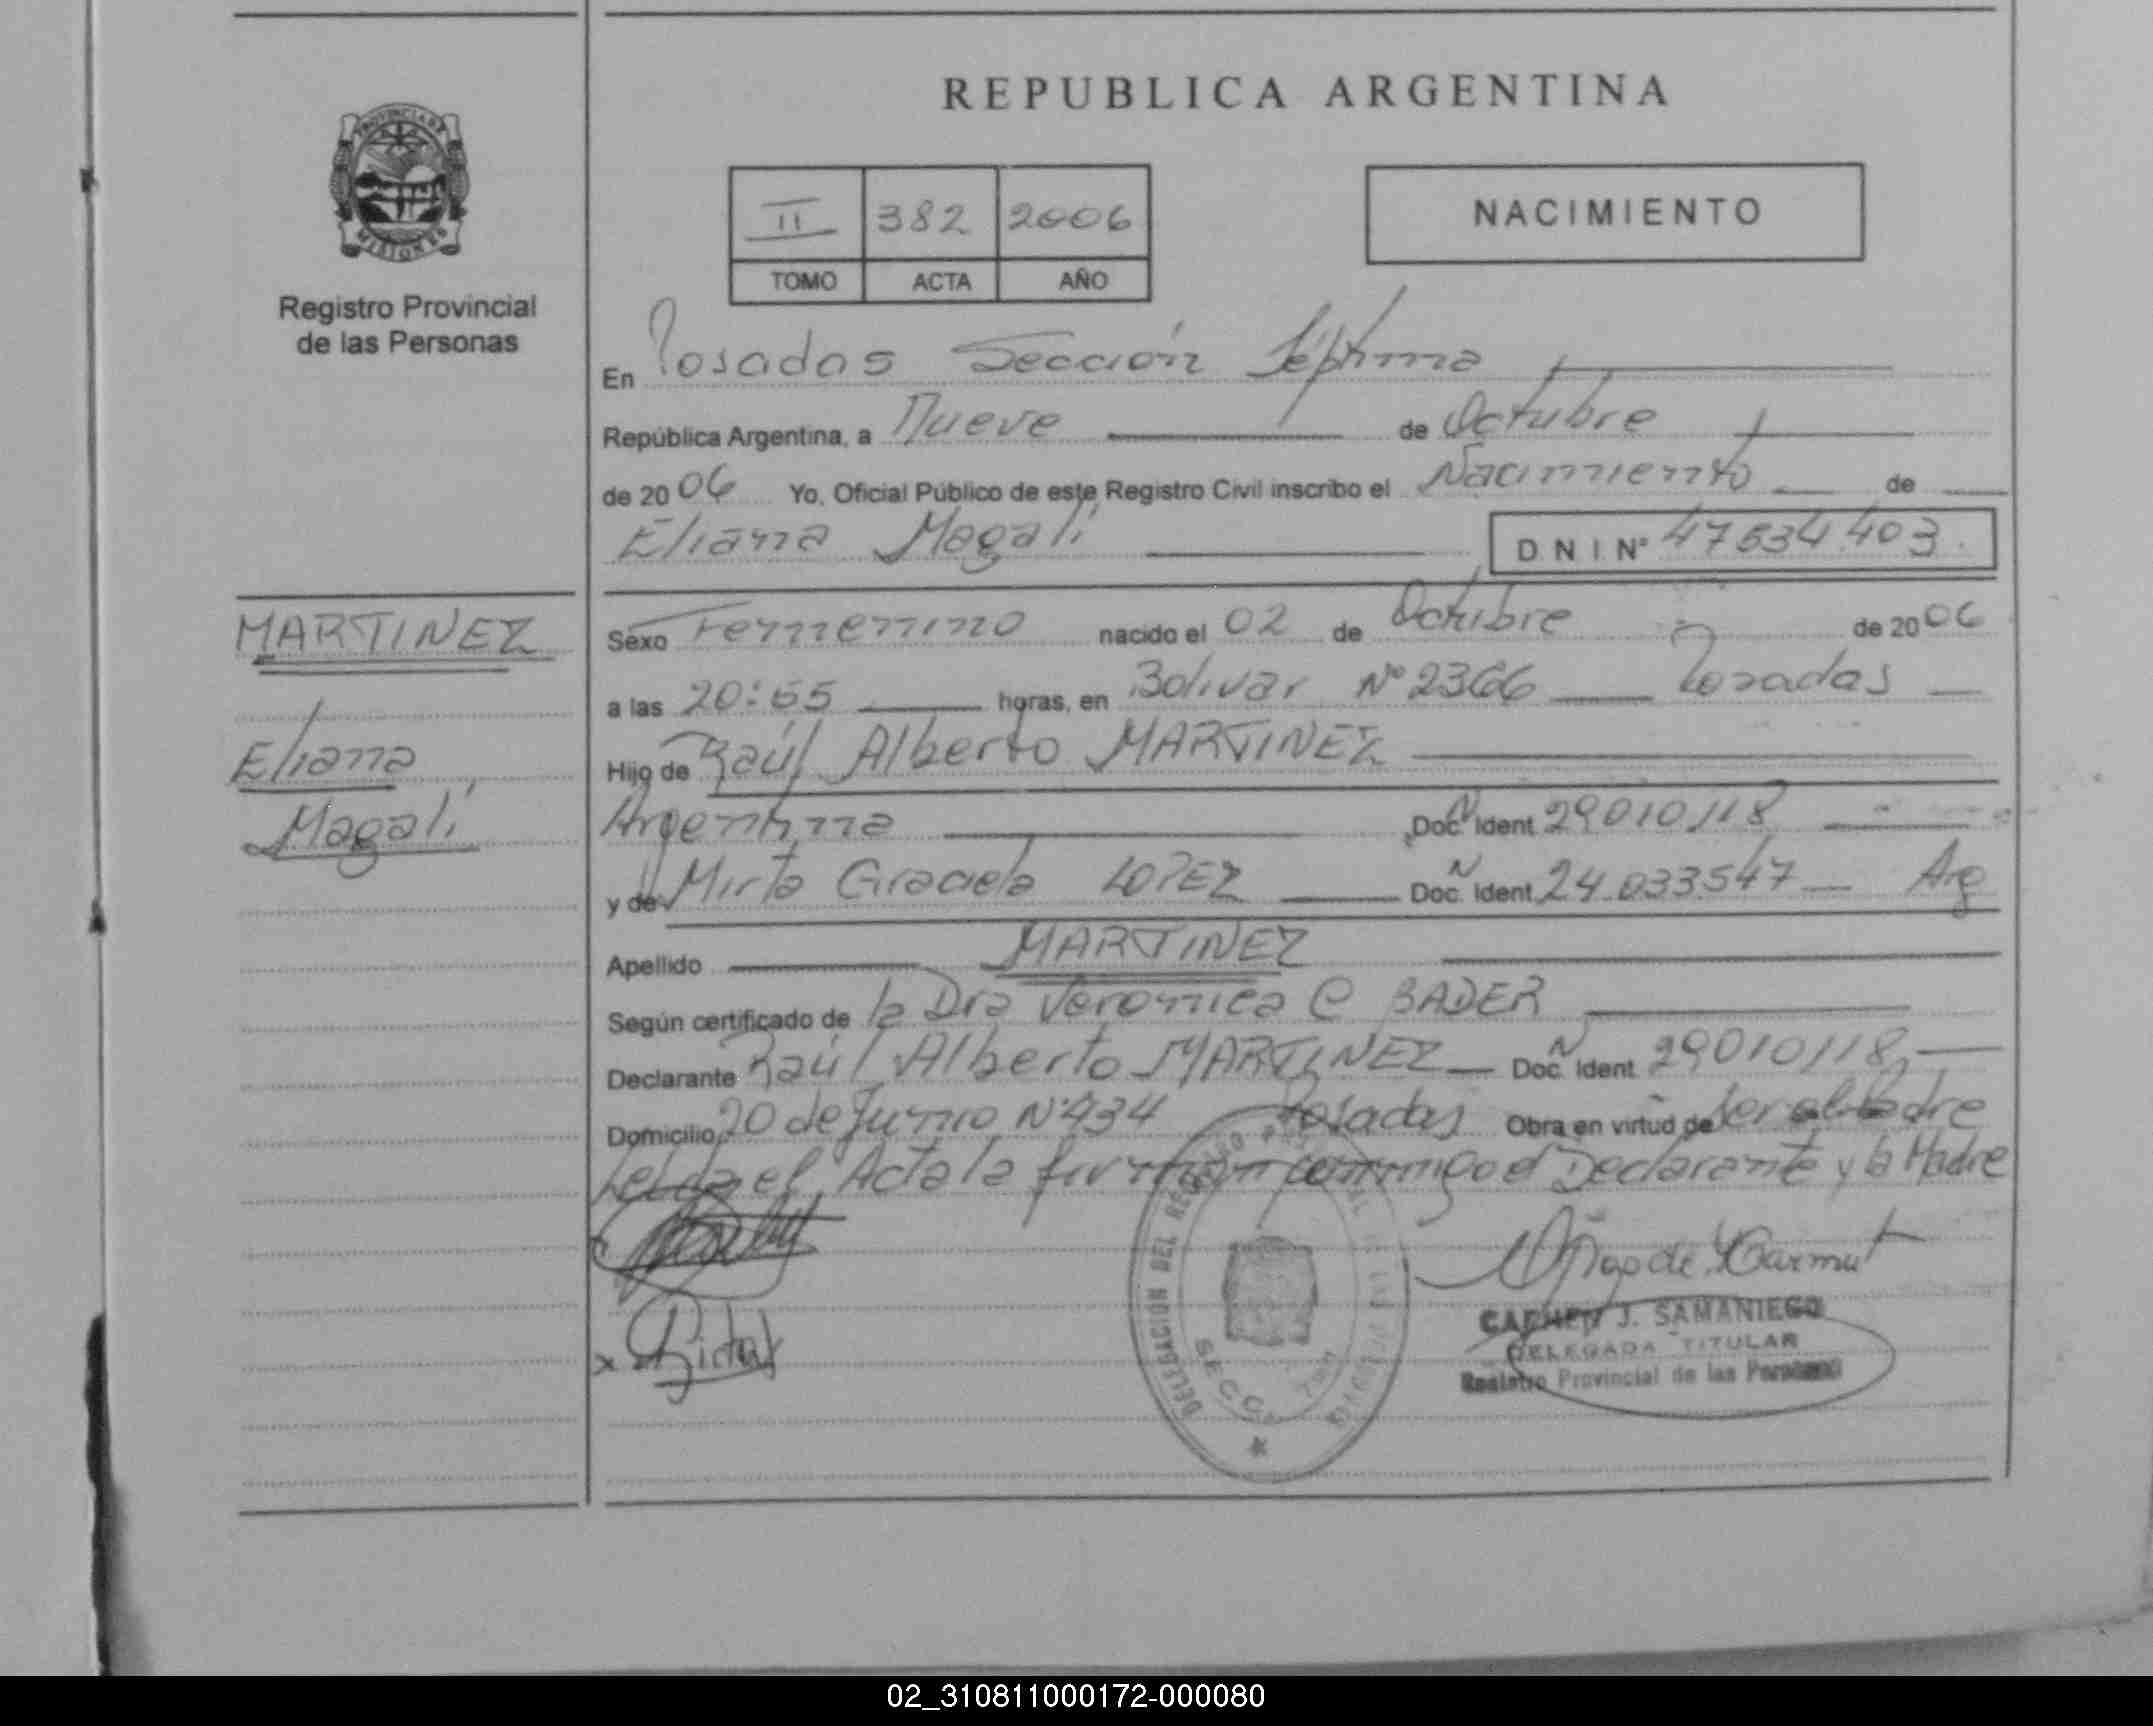 REPUBLICA ARGENTINA
PROVINCIA DE
MISIONES
Registro Provincial
de las Personas
II 382 2006
TOMO ACTA AÑO
NACIMIENTO
En Posadas Sección Séptima
República Argentina, a Nueve de Octubre
de 2006 Yo, Oficial Público de este Registro Civil inscribo el Nacimiento de
Eliana Magalí D N I Nº 47534403.
MARTINEZ
Eliana
Magalí
Sexo Femenino nacido el 02 de Octubre de 2006
a las 20:55 horas, en Bolivar Nº 2366 Posadas
Hijo de Raúl Alberto MARTINEZ
Argentina Doc. N Ident 29010118
y de Mirta Graciela LOPEZ Doc. N Ident. 24.033547 Arg
Apellido MARTINEZ
Según certificado de la Dra Veronica C BADER
Declarante Raúl Alberto MARTINEZ Doc. N Ident. 29010118
Domicilio 20 de Junio Nº 434 Posadas Obra en virtud de Ser el Padre
Leida el Acta la firman conmigo el Declarante y la Madre
DELEGACION DEL REGISTRO
SECC.
CARMEN J. SAMANIEGO
DELEGADA TITULAR
Registro Provincial de las Personas
02_310811000172-000080